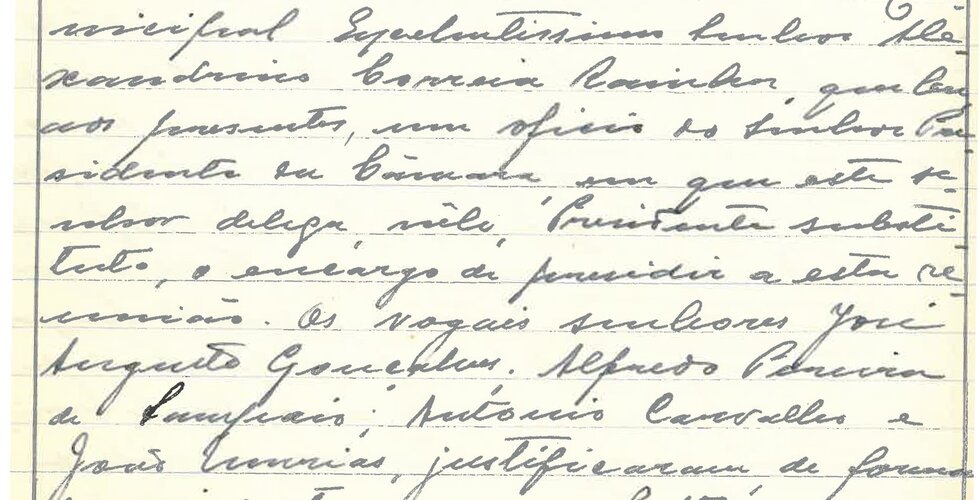 nicipal Excelentissimo Senhor Ale-
xandrino Correia Rainho, que leu
aos presentes, um oficio do Senhor Pre-
sidente da Câmara em que este se-
nhor delega, nele, Presidente substi-
tuto, o encargo de presidir a esta re-
união. Os vogais senhores José
Augusto Gonçalves, Alfredo Pereira
de Sampaio, António Carvalho e
João, justificaram de forma